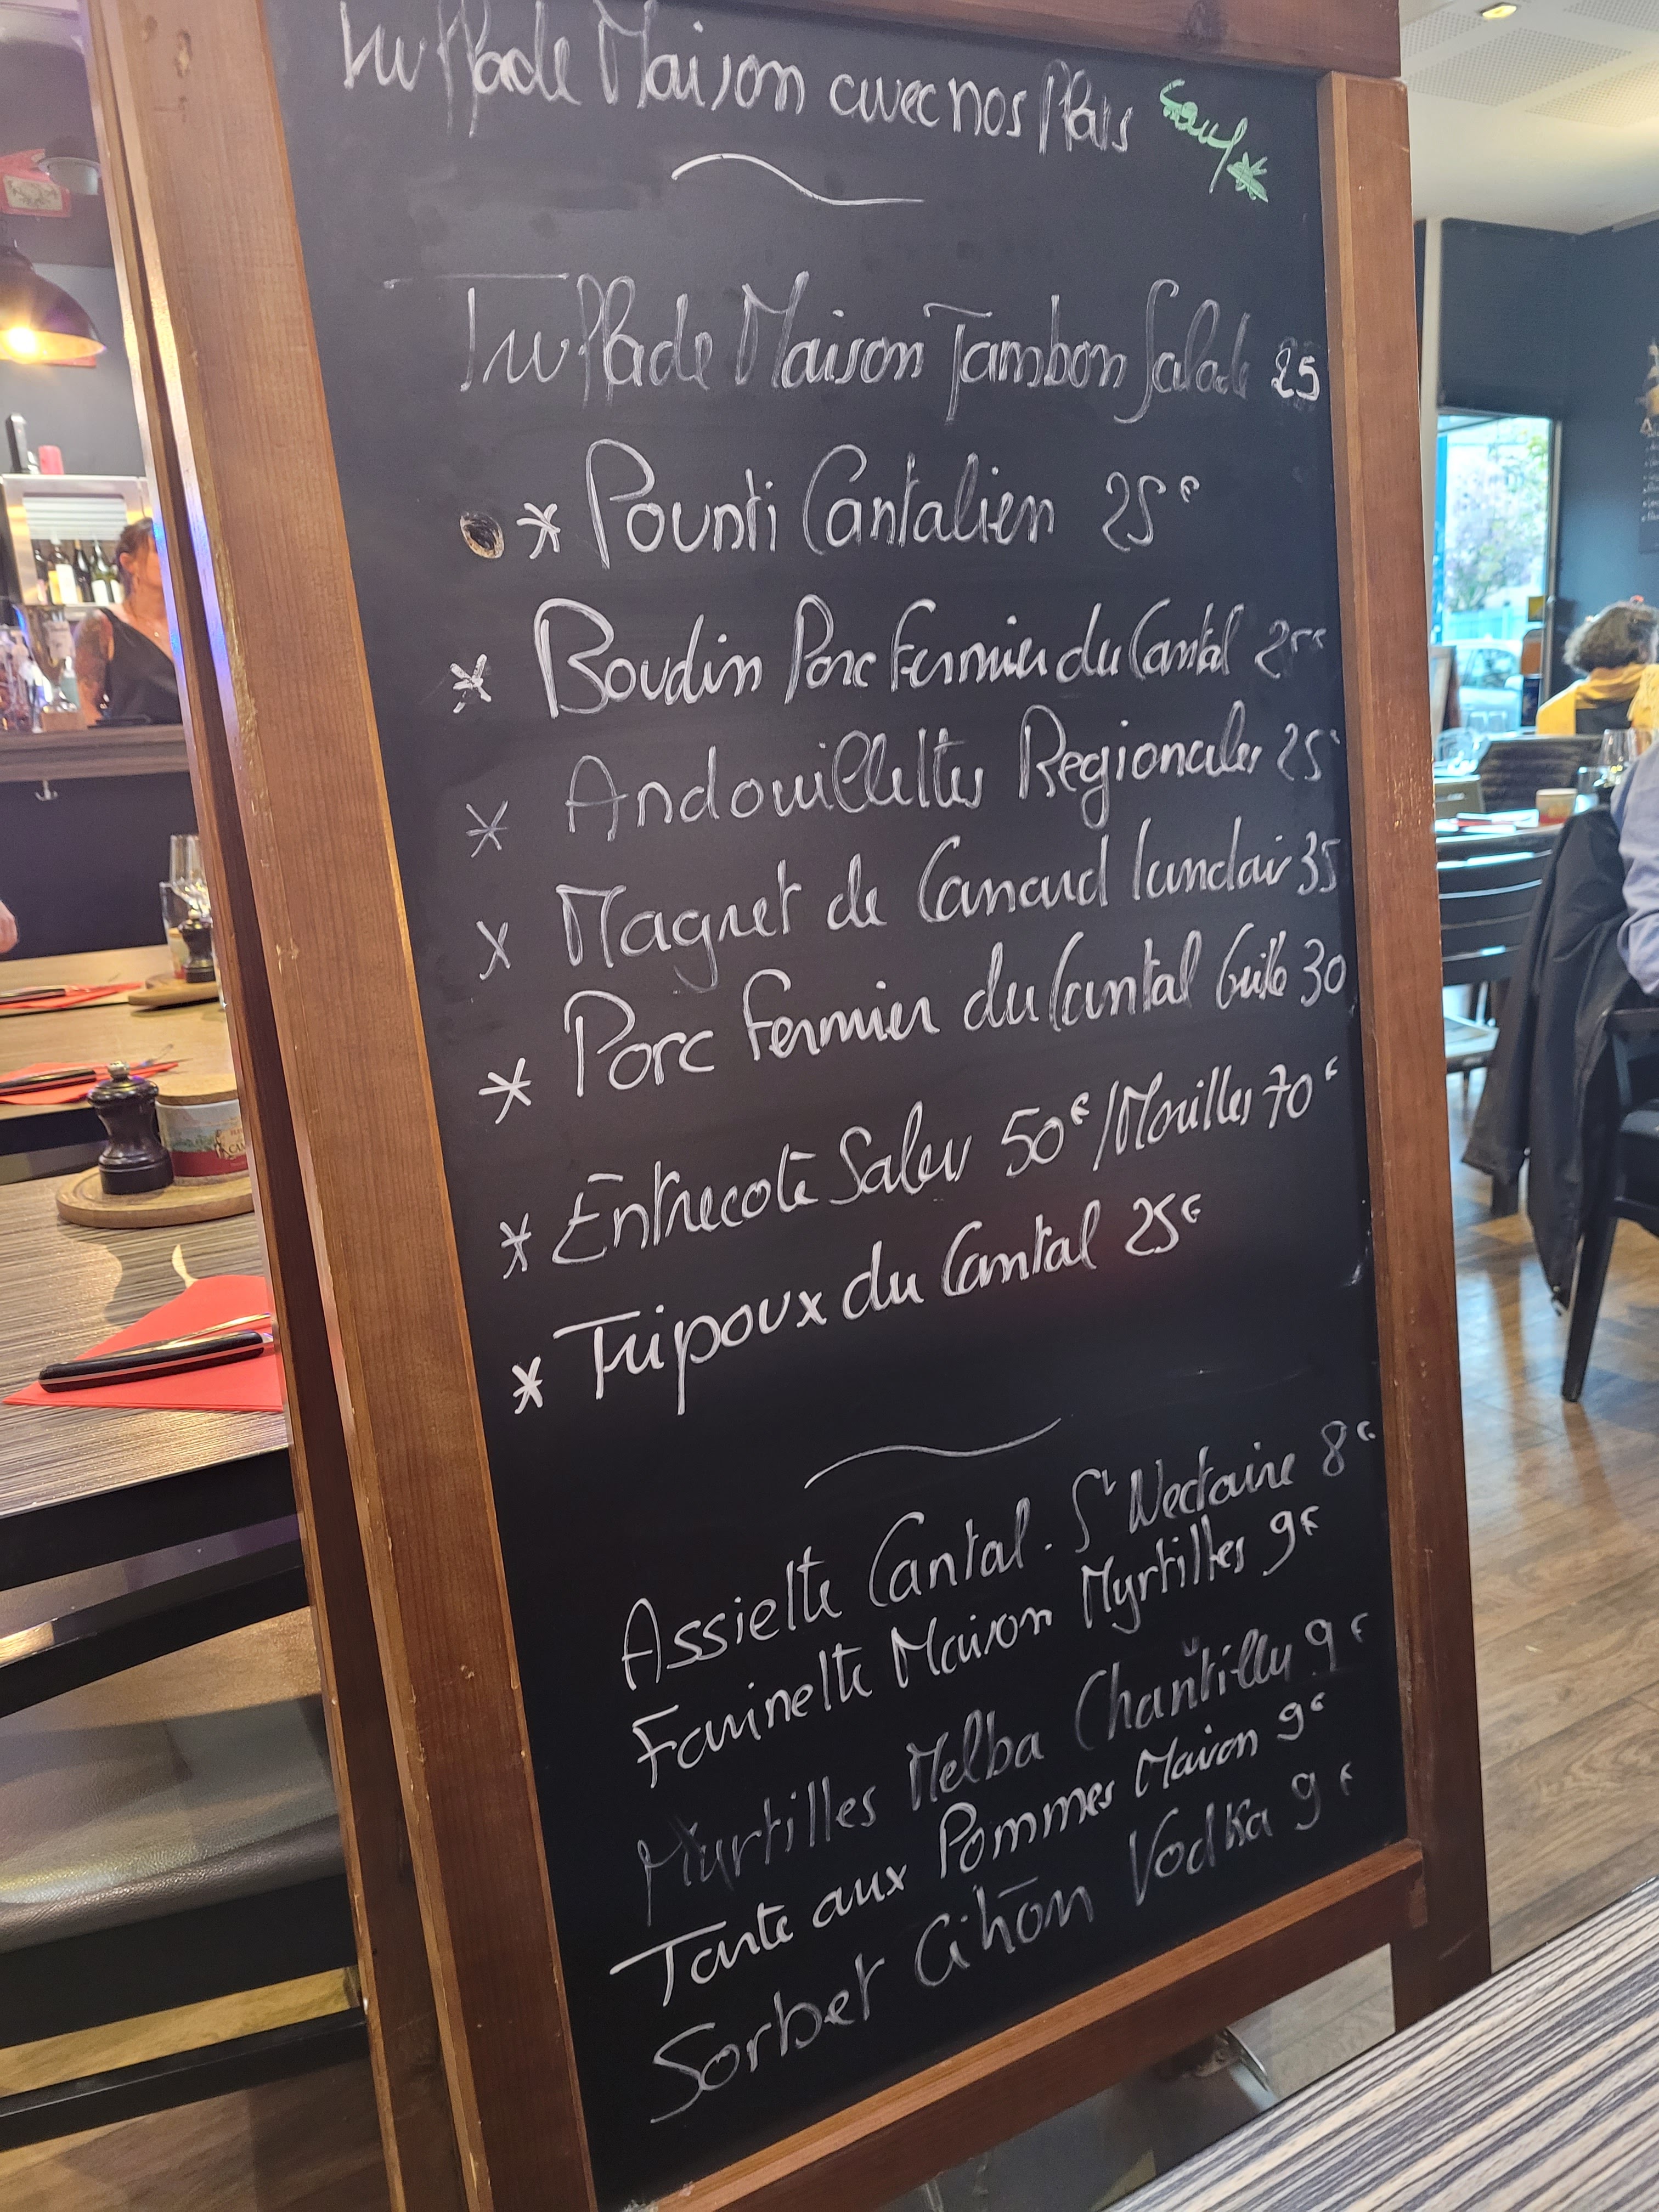 Truffade Maison avec nos Plats sauf *
Truffade Maison Jambon Salade 25
* Pounti Cantalien 25€
* Boudin Porc Fermier du Cantal 25€
* Andouillettes Regionales 25
x Magret de Canard landais 35
* Porc Fermier du Cantal Grillé 30
* Entrecote Salers 50€ / Morilles 70€
* Tripoux du Cantal 25€
Assiette Cantal. St Nectaire 8€
Farinette Maison Myrtilles 9€
Myrtilles Melba Chantilly 9€
Tarte aux Pommes Maison 9€
Sorbet Citron Vodka 9€